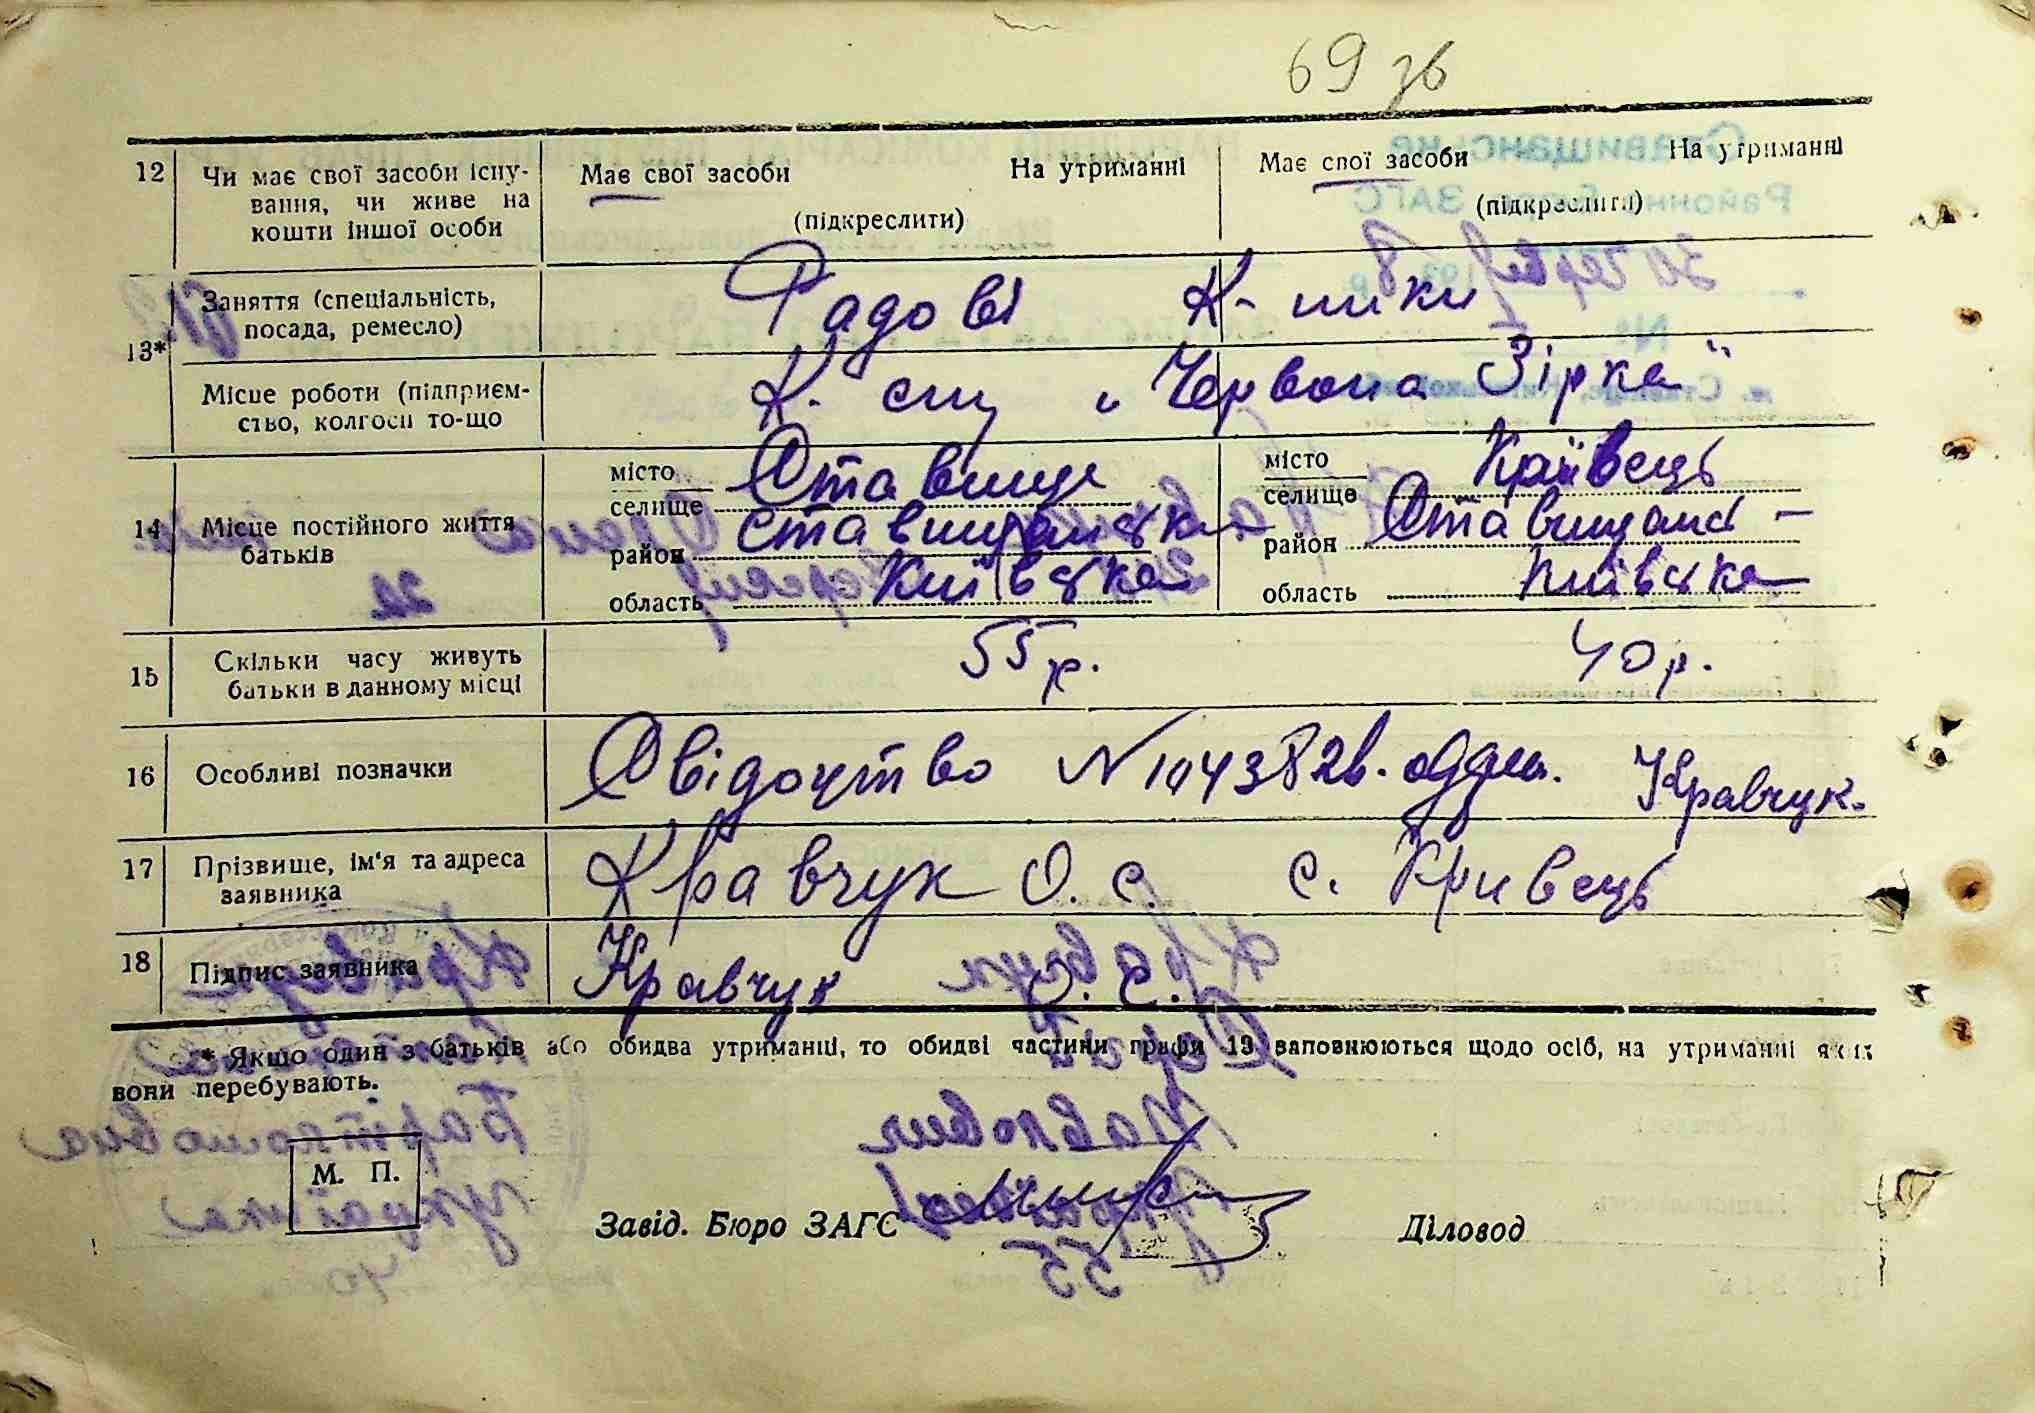 69 зв
12 Чи має свої засоби існу-
вання, чи живе на
кошти іншої особи
Має свої засоби На утриманні
(підкреслити)
Має свої засоби На утриманні
(підкреслити)
13*
Заняття (спеціальність,
посада, ремесло)
Рядові К-ники
Місце роботи (підприєм-
ство, колгосп то-що
К. спц „Червона Зірка"
14 Місце постійного життя
батьків
місто
селище Ставище
район Ставищанськ
область Київська
місто
селище Кривець
район Ставищанс-
область Київська
15 Скільки часу живуть
батьки в данному місці
55 р. 40 р.
16 Особливі позначки
Свідочтво N 104382 в. одгм. Кравчук.
17 Прізвище, ім'я та адреса
заявника
Кравчук О. С. с. Кривець
18 Підпис заявника
Кравчук О. С.
* Якщо один з батьків або обидва утриманці, то обидві частини графи 13 заповнюються щодо осіб, на утриманні яких
вони перебувають.
М. П.
Завід. Бюро ЗАГС
Діловод